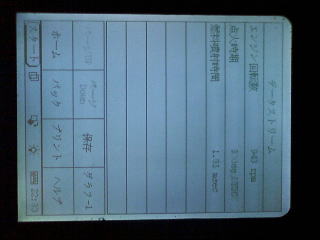 データストリーム
エンジン回転数 943 rpm
点火時期
燃料噴射時間 1.93 msec
ページ
DOWN
保存
グラフ-1
ホーム
バック
プリント
ヘルプ
スタート
22:33